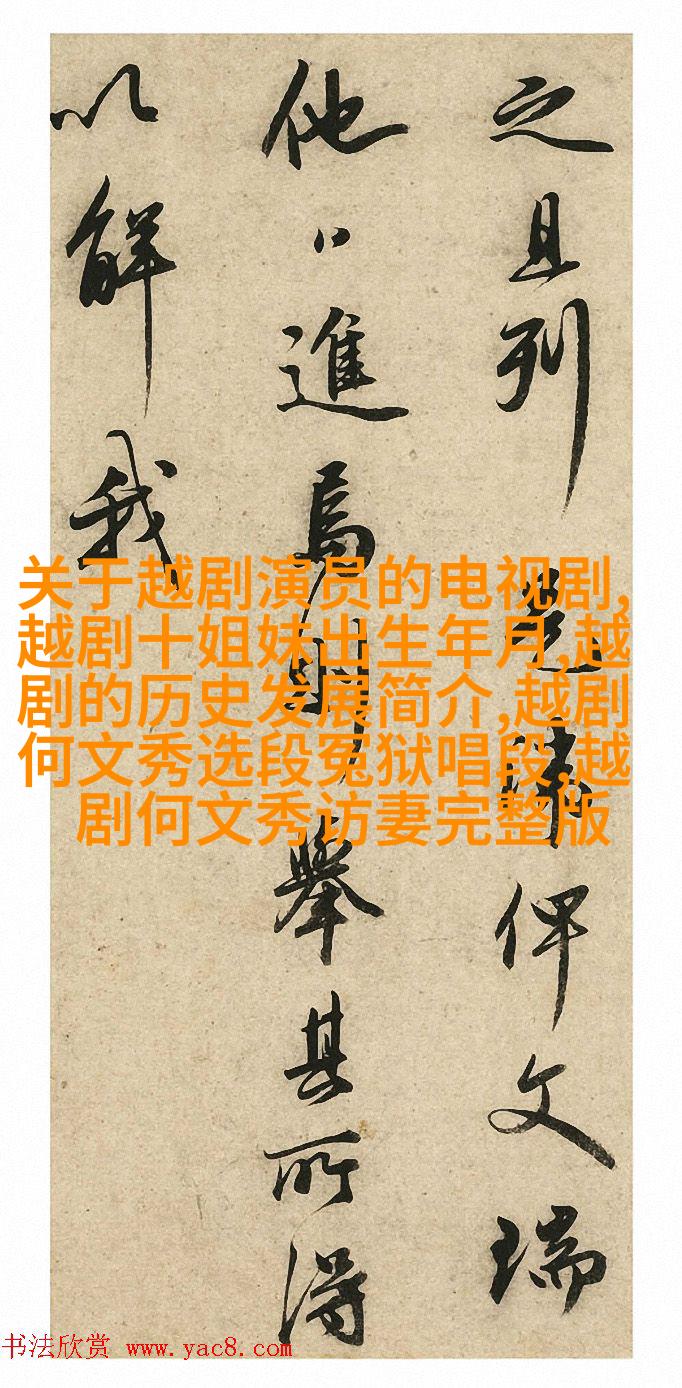 之且列俾文瑞
他進焉舉其所得
以解我
关于越剧演员的电视剧,
越剧十姐妹出生年月,越
剧的历史发展简介,越剧
何文秀选段冤狱唱段,越
剧何文秀访妻完整版
书法欣赏 www.yac8.com